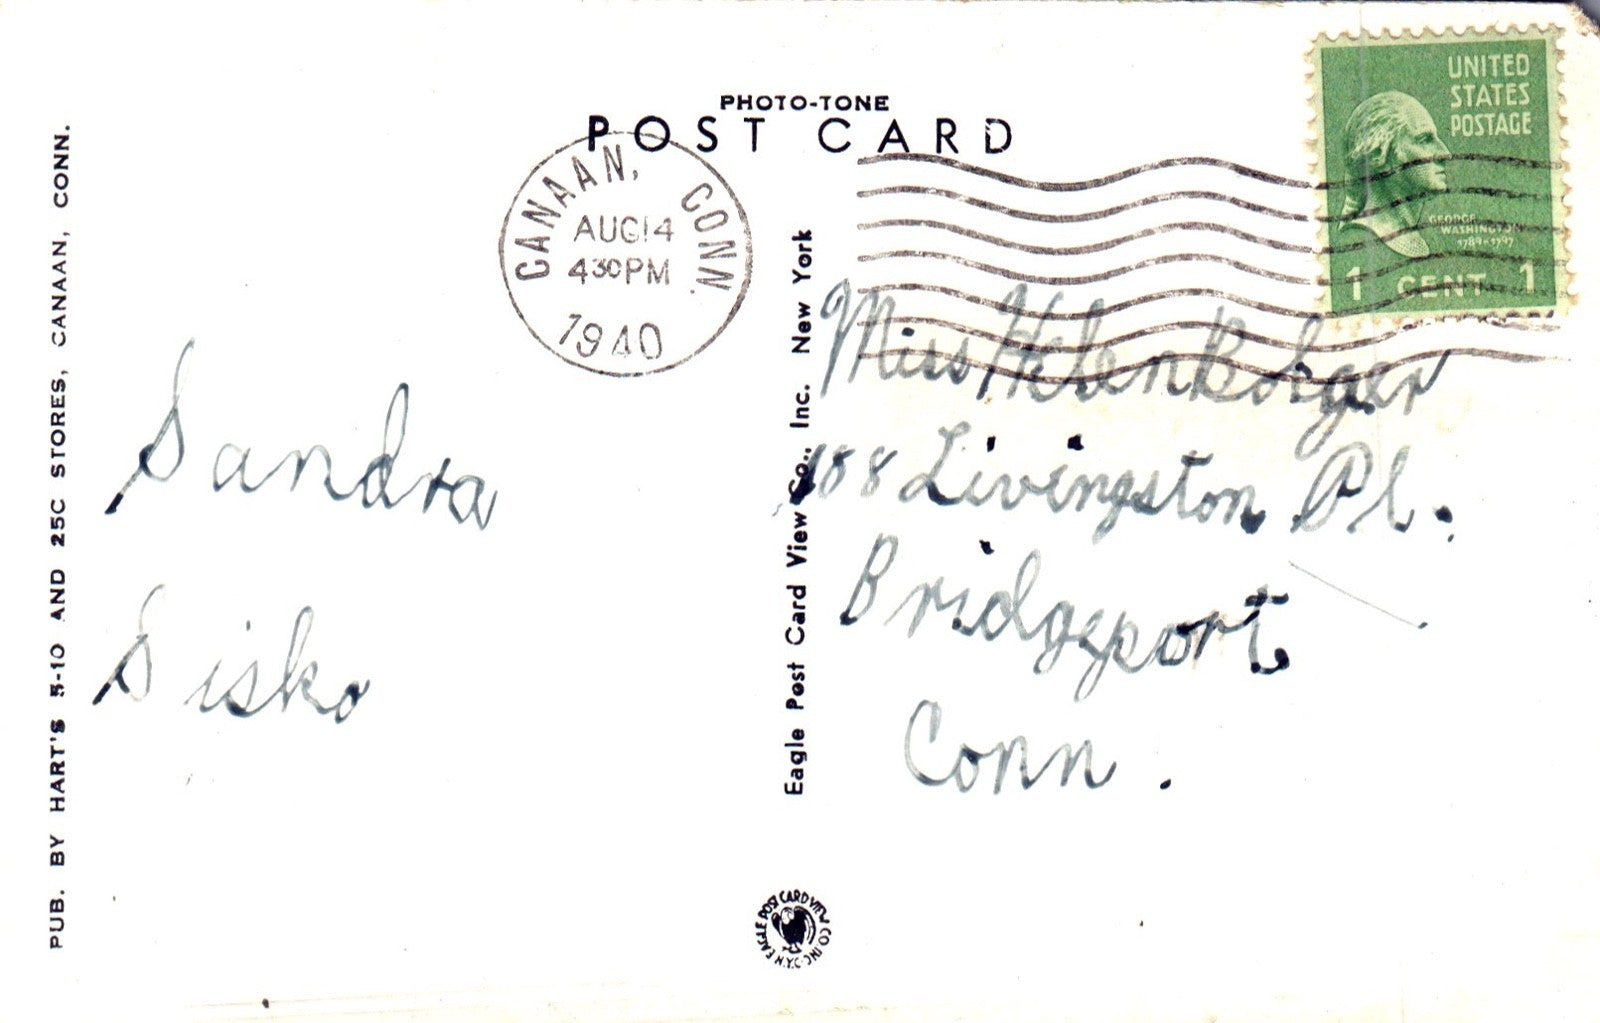 PHOTO-TONE
POST CARD
CANAAN, CONN.
AUG 14
430PM
1940
UNITED
STATES
POSTAGE
GEORGE
WASHINGTON
1789-1797
1 CENT 1
PUB. BY HART'S 5-10 AND 25C STORES, CANAAN, CONN.
Sandra
Sisko
Eagle Post Card View Co., Inc. New York
Miss Helen Bolger
188 Livingston Pl.
Bridgeport
Conn.
EAGLE POST CARD VIEW CO. INC. N.Y.C.